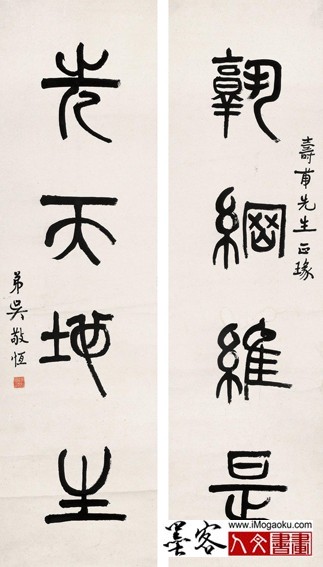 孰綱維是
壽甫先生正瑑
先天地生
弟吳敬恒
墨客
www.iMogaoku.com
人文書畫